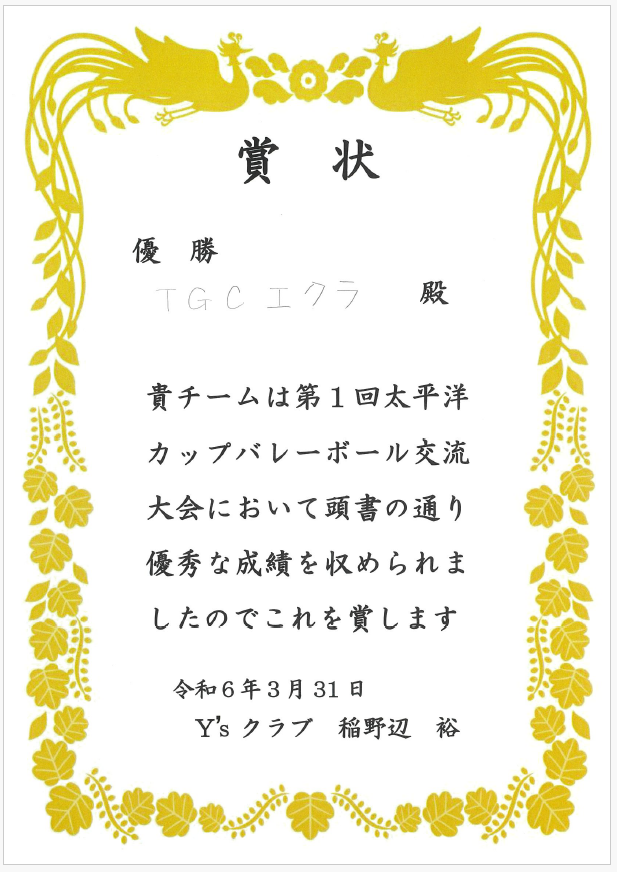 賞 状
優 勝
TGCエクラ 殿
貴チームは第１回太平洋
カップバレーボール交流
大会において頭書の通り
優秀な成績を収められま
したのでこれを賞します
令和６年３月31日
Y's クラブ 稲野辺 裕